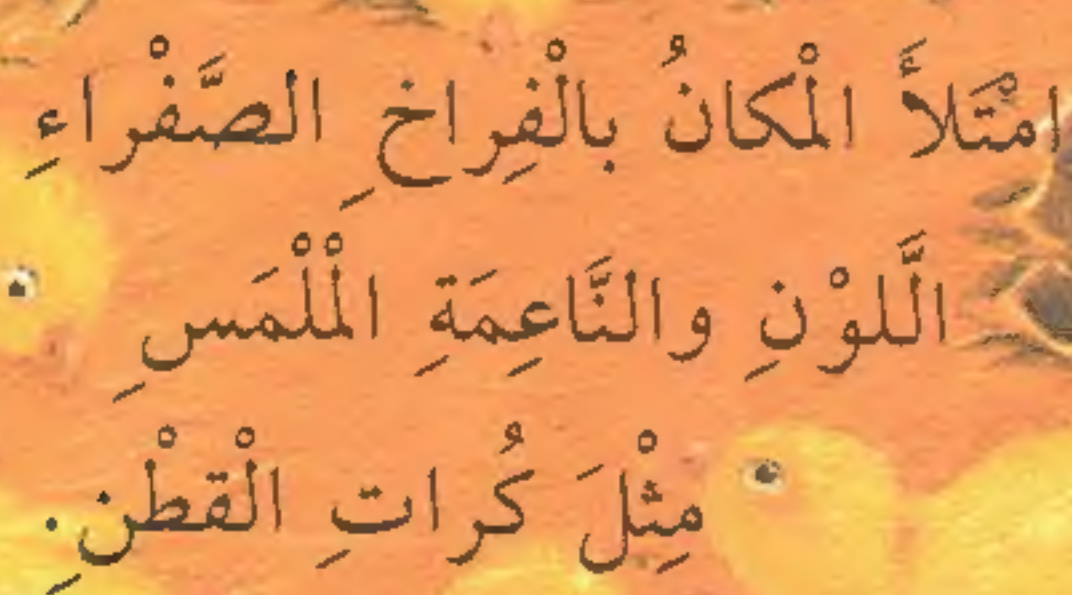 امْتَلأَ الْمكانُ بالْفِراخِ الصَّفْراءِ
الَّلوْنِ والنَّاعِمَةِ الْملْمَسِ
مِثْلَ كُراتِ الْقطْنِ.